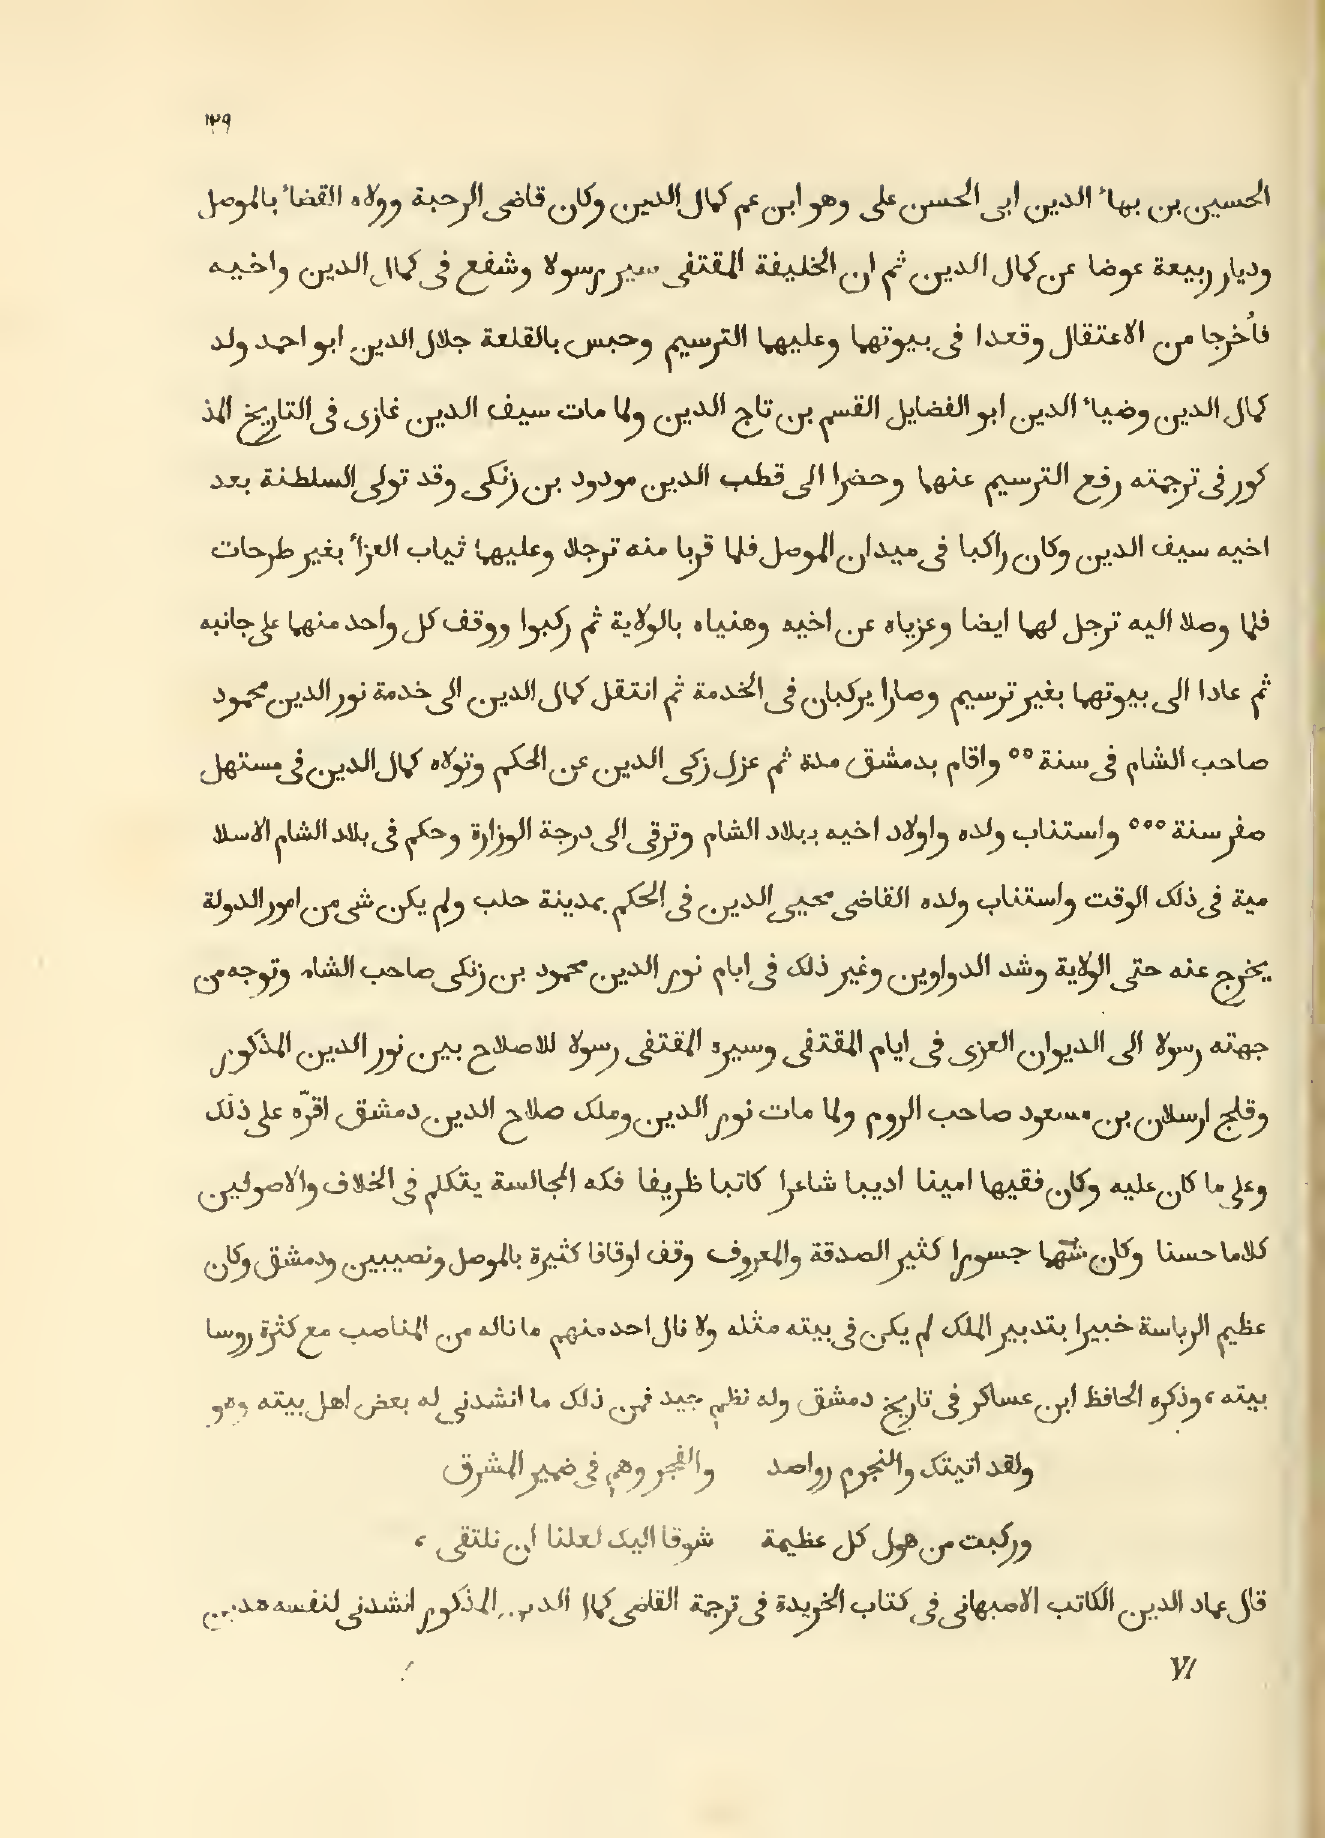 ١٣٩
الحسين بن بهاء الدين ابى الحسن على وهو ابن عم كمال الدين وكان قاضى الرحبة وولاه القضاء بالموصل
وديار ربيعة عوضا عن كمال الدين ثم ان الخليفة المقتفى سير رسولا وشفع فى كمال الدين واخيه
فأخرجا من الاعتقال وقعدا فى بيوتهما وعليهما الترسيم وحبس بالقلعة جلال الدين ابو احمد ولد
كمال الدين وضياء الدين ابو الفضايل القسم بن تاج الدين ولما مات سيف الدين غازى فى التاريخ المذ
كور فى ترجمته رفع الترسيم عنهما وحضرا الى قطب الدين مودود بن زنكى وقد تولى السلطنة بعد
اخيه سيف الدين وكان راكبا فى ميدان الموصل فلما قربا منه ترجلا وعليهما ثياب العزاء بغير طرحات
فلما وصلا اليه ترجل لهما ايضا وعزياه عن اخيه وهنياه بالولاية ثم ركبوا ووقف كل واحد منهما على جانبه
ثم عادا الى بيوتهما بغير ترسيم وصارا يركبان فى الخدمة ثم انتقل كمال الدين الى خدمة نور الدين محمود
صاحب الشام فى سنة ٥٥ واقام بدمشق مدة ثم عزل زكى الدين عن الحكم وتولاه كمال الدين فى مستهل
صفر سنة ٥٥٥ واستناب ولده واولاد اخيه ببلاد الشام وترقى الى درجة الوزارة وحكم فى بلاد الشام الاسلا
مية فى ذلك الوقت واستناب ولده القاضى محيى الدين فى الحكم بمدينة حلب ولم يكن شى من امور الدولة
يخرج عنه حتى الولاية وشد الدواوين وغير ذلك فى ايام نور الدين محمود بن زنكى صاحب الشام وتوجه من
جهته رسولا الى الديوان العزى فى ايام المقتفى وسيره المقتفى رسولا للاصلاح بين نور الدين المذكور
وقلج ارسلان بن مسعود صاحب الروم ولما مات نور الدين وملك صلاح الدين دمشق اقرّه على ذلك
وعلى ما كان عليه وكان فقيها امينا اديبا شاعرا كاتبا ظريفا فكه المجالسة يتكلم فى الخلاف والاصولين
كلاما حسنا وكان شهما جسورا كثير الصدقة والمعروف وقف اوقافا كثيرة بالموصل ونصيبين ودمشق وكان
عظيم الرياسة خبيرا بتدبير الملك لم يكن فى بيته مثله ولا نال احد منهم ما ناله من المناصب مع كثرة روسا
بيته، وذكره الحافظ ابن عساكر فى تاريخ دمشق وله نظم جيد فمن ذلك ما انشدنى له بعض اهل بيته وهو
ولقد اتيتك والنجوم رواصد والفجر وهم فى ضمير المشرق
وركبت من هول كل عظيمة شوقا اليك لعلنا ان نلتقى ،
قال عماد الدين الكاتب الاصبهانى فى كتاب الخريدة فى ترجمة القاضى كمال الدين المذكور انشدنى لنفسه هذين
VI